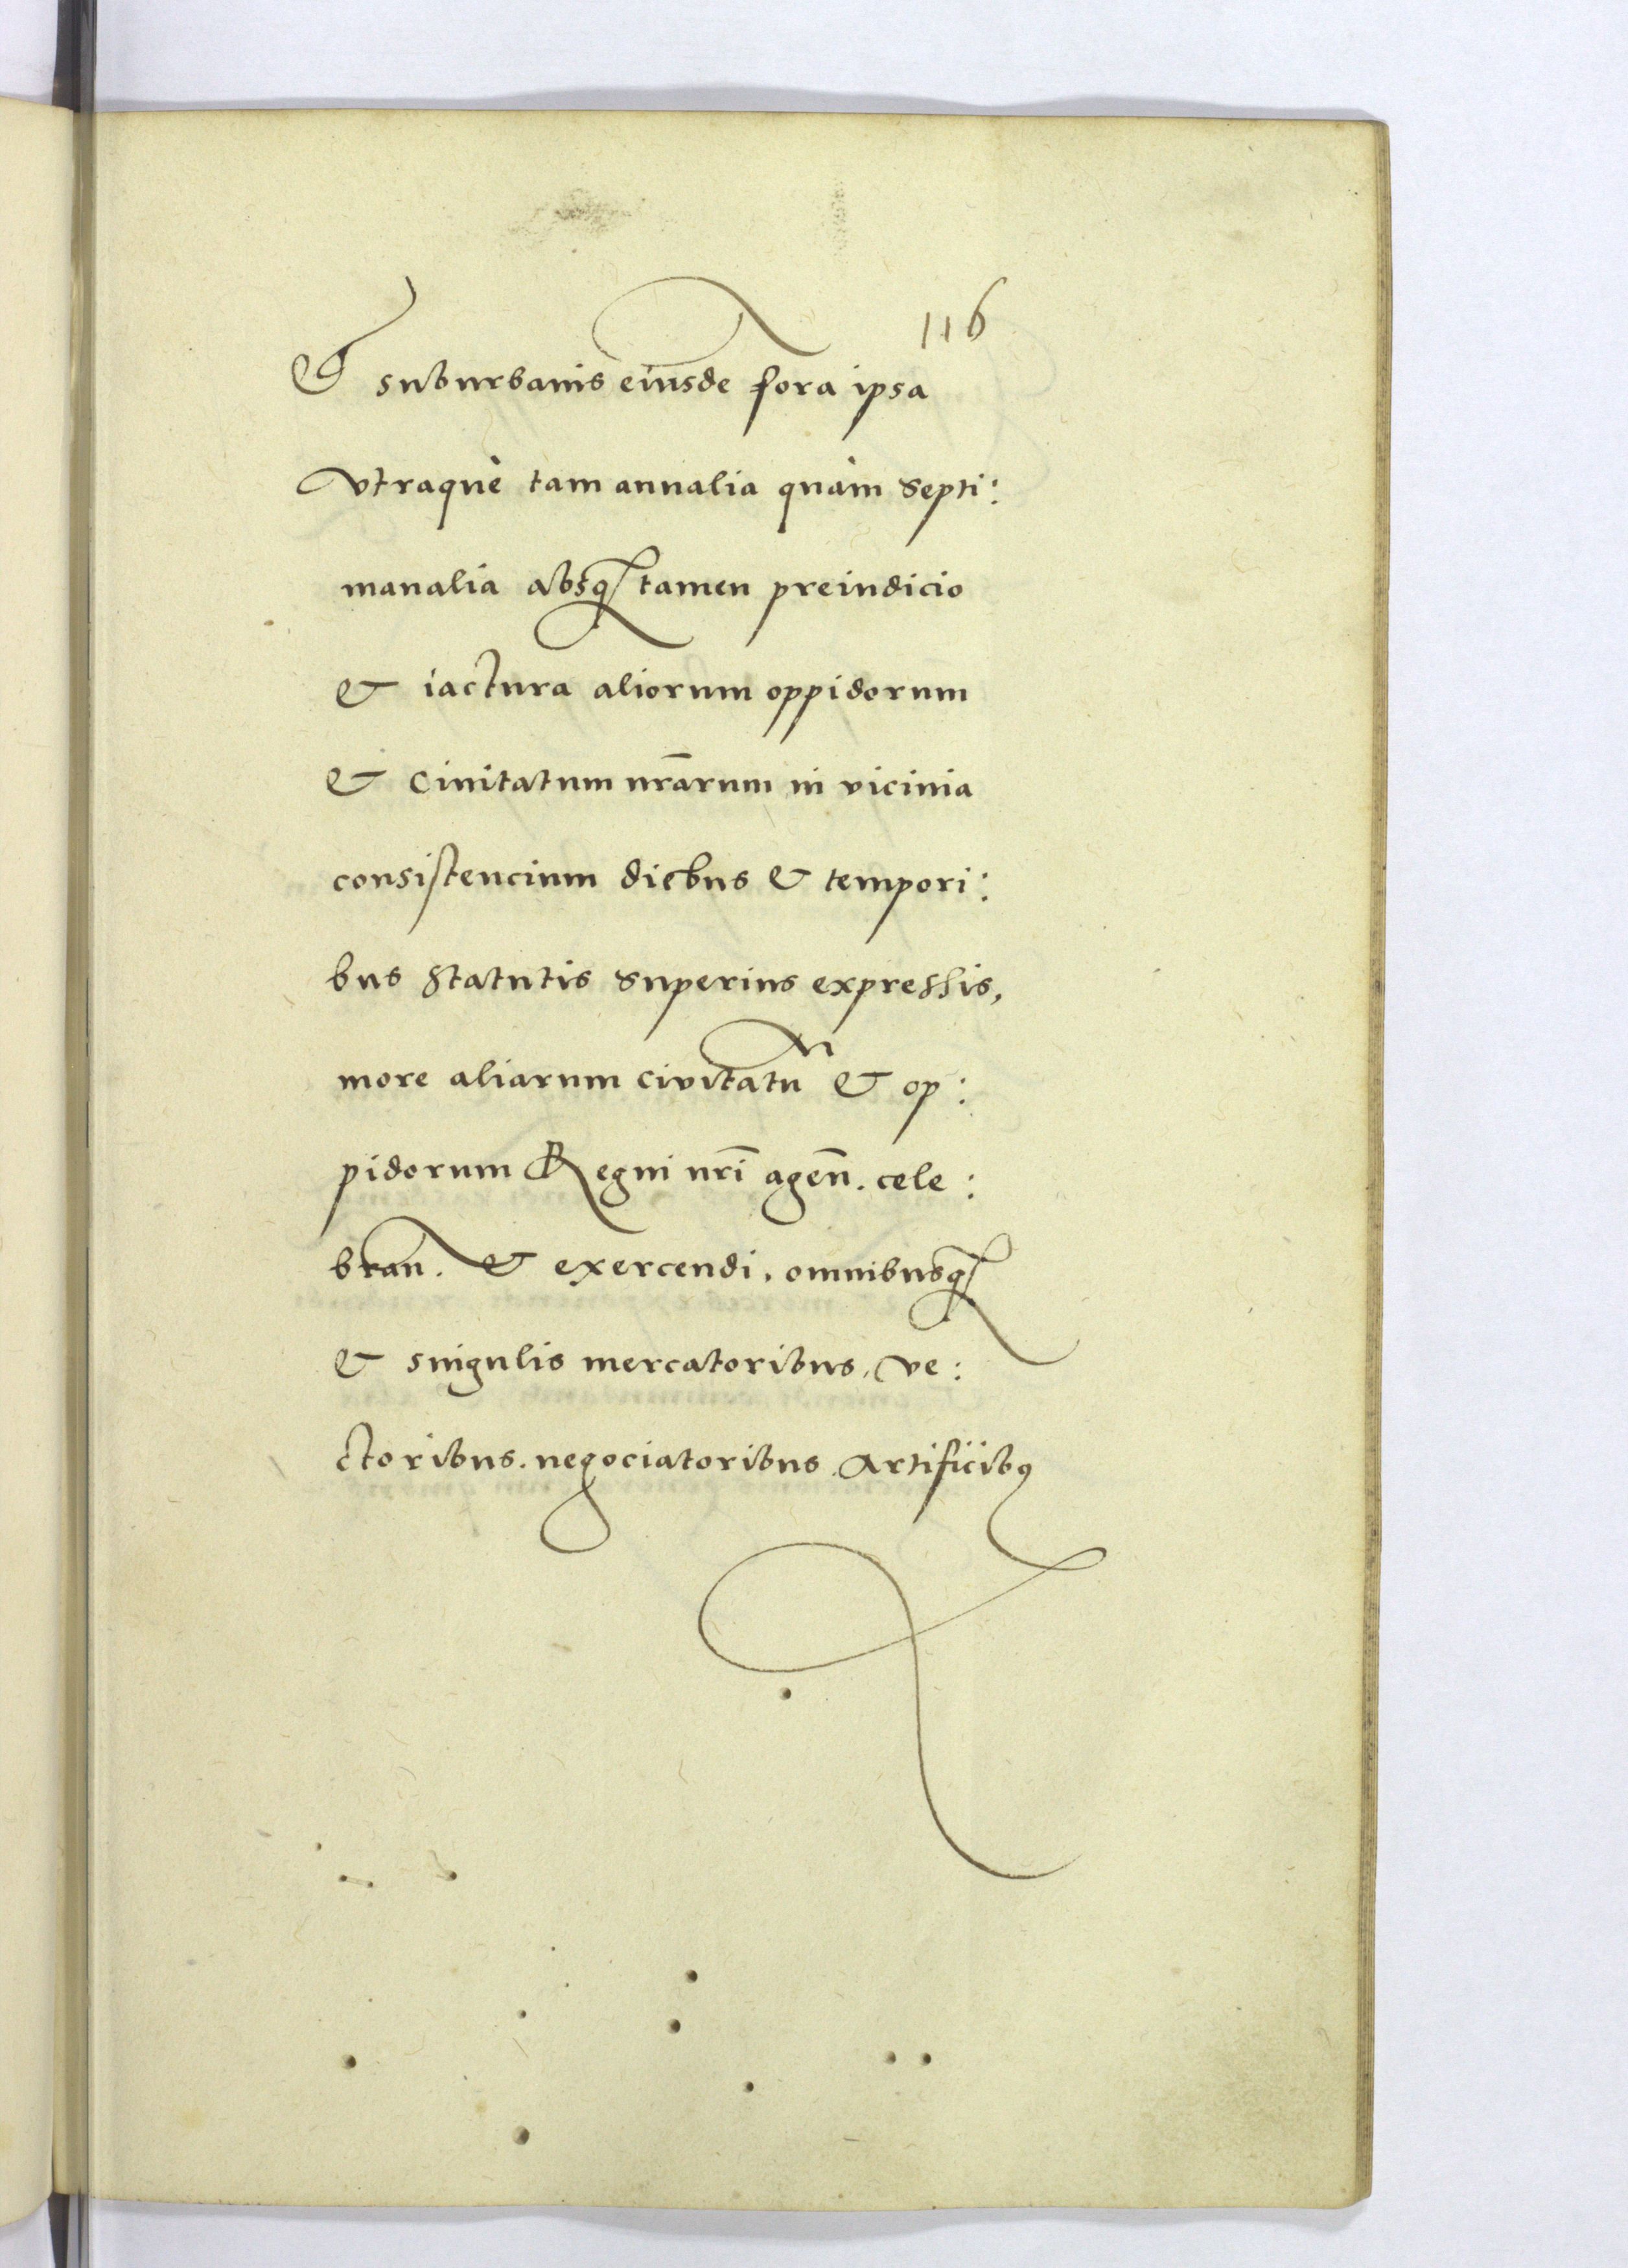 116
& suburbanis eiusde fora ipsa
Vtraquè tam annalia quàm Septi:
manalia absq tamen preiudicio
& iactura aliorum oppidorum
& Ciuitatum nr̄arum in vicinia
consistencium diebus & tempori:
bus Statutis Superius expressis,
more aliarum civitatū & op:
pidorum Regni nr̄i agen̄. cele:
bran̄. & exercendi, omnibusq
& singulis mercatoribus, ve:
ctoribus. negociatoribus. Artificibꝰ